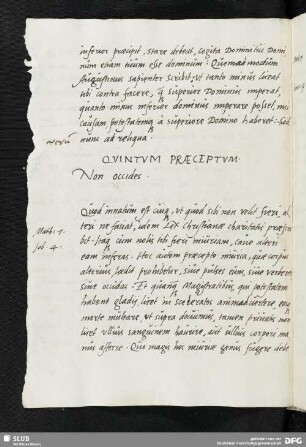 inferior præcipit, stare debeat, cogita Dominum Domi
num etiam tuum esse dominum. Quemadmodum
Augustinus sapienter scribit, ut tanto minus liceat
tibi contra facere, quod superior Dominus imperat,
quanto minus inferior dominus imperare posset, nisi
causam potestatemque a superiore Domino haberet.
num ad reliqua.
QVINTVM PRÆCEPTVM.
Non occides.
Matth. 7.
Tob. 4.
Quod innatum est cuique, ut quod sibi non velit fieri, al
teri ne faciat, idem Lex Christianæ charitatis præscri
bit. Itaque cum nolis tibi fieri iniuriam, cave alteri
eam inferas. Hoc autem præcepto iniuria, quæ corpus
alterius lædit prohibetur, sive pulses eum, sive verberes
sive occidas. Et quamquam Magistratibus, qui potestatem
habent gladij, licet in sceleratos animadvertere, eosque
morte mulctare, ut supra docuimus, tamen privatis non
licet ullius sanguinem haurire, aut ullius corpori ma
nus afferre. Quo magis hoc iniuriæ genus fugere debe
SLUB